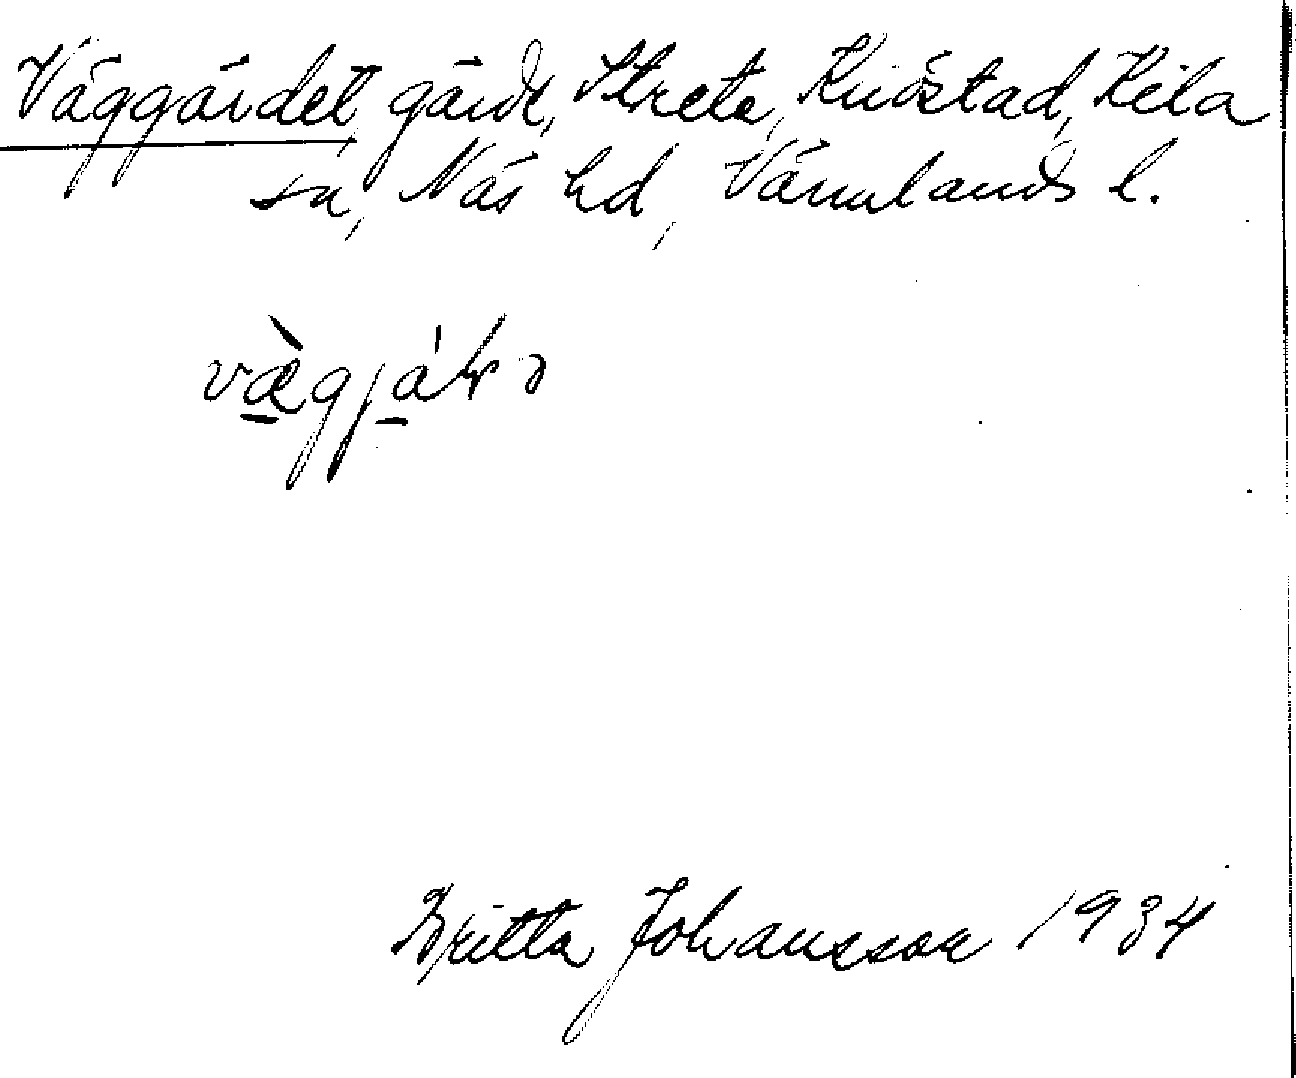 Väggärdet, gärde, Strete, Knöstad, Kila
sn, Näs hd, Värmlands l.
væ̀gjáɽə
Britta Johansson 1934